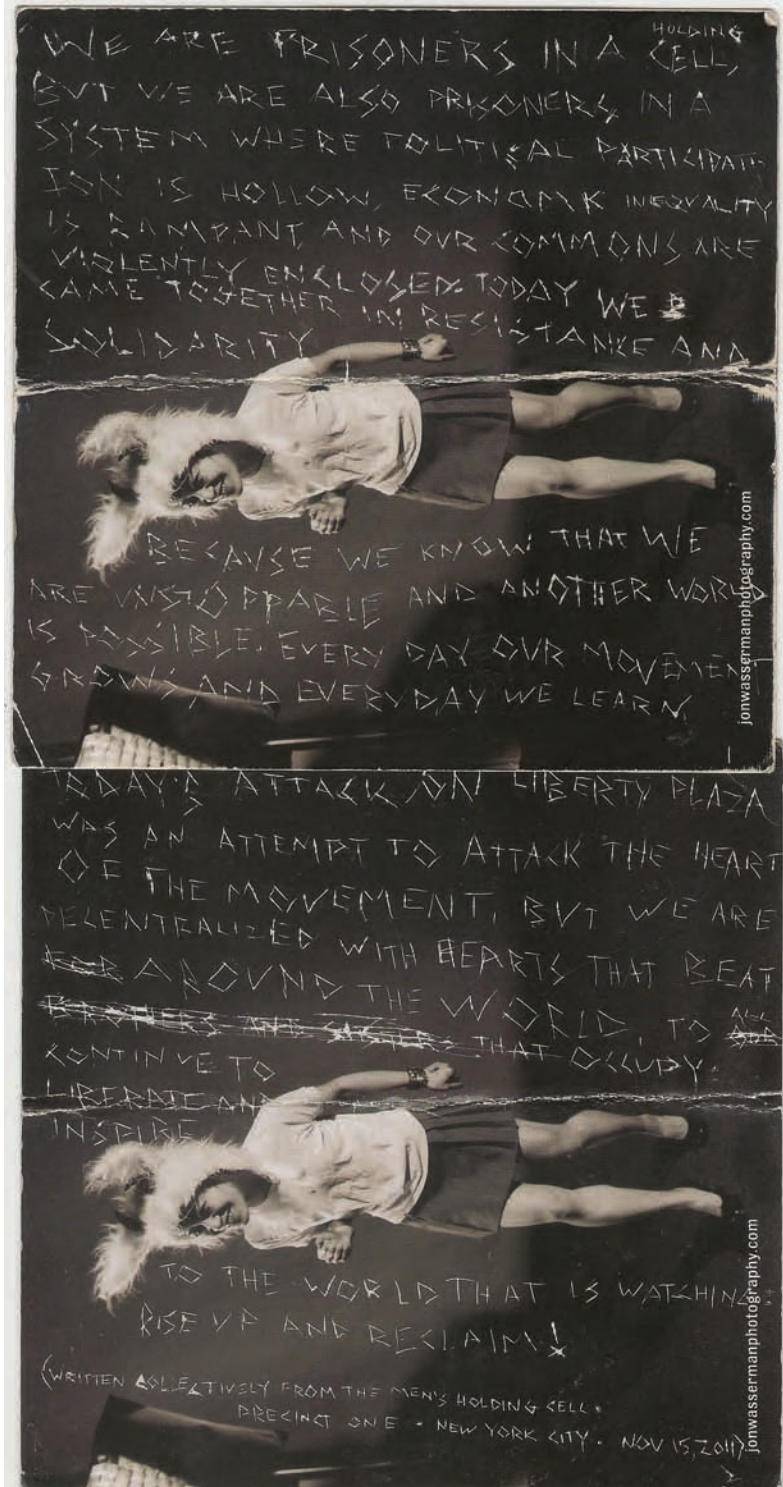 HOLDING
WE ARE PRISONERS IN A CELL,
BUT WE ARE ALSO PRISONERS IN A
SYSTEM WHERE POLITICAL PARTICIPAT-
ION IS HOLLOW, ECONOMIC INEQUALITY
IS RAMPANT, AND OUR COMMONS ARE
VIOLENTLY ENCLOSED. TODAY WE
CAME TOGETHER IN RESISTANCE AND
SOLIDARITY
BECAUSE WE KNOW THAT WE
ARE UNSTOPPABLE AND ANOTHER WORLD
IS POSSIBLE. EVERY DAY OUR MOVEMENT
GROWS, AND EVERYDAY WE LEARN
jonwassermanphotography.com
TODAY'S ATTACK ON LIBERTY PLAZA
WAS AN ATTEMPT TO ATTACK THE HEART
OF THE MOVEMENT, BUT WE ARE
DECENTRALIZED WITH HEARTS THAT BEAT
AROUND THE WORLD, TO ALL
BROTHERS AND SISTERS THAT OCCUPY.
CONTINUE TO
LIBERATE AND
INSPIRE
TO THE WORLD THAT IS WATCHING
RISE UP AND RECLAIM!
(WRITTEN COLLECTIVELY FROM THE MEN'S HOLDING CELL.
PRECINCT ONE - NEW YORK CITY. NOV 15, 2011)
jonwassermanphotography.com